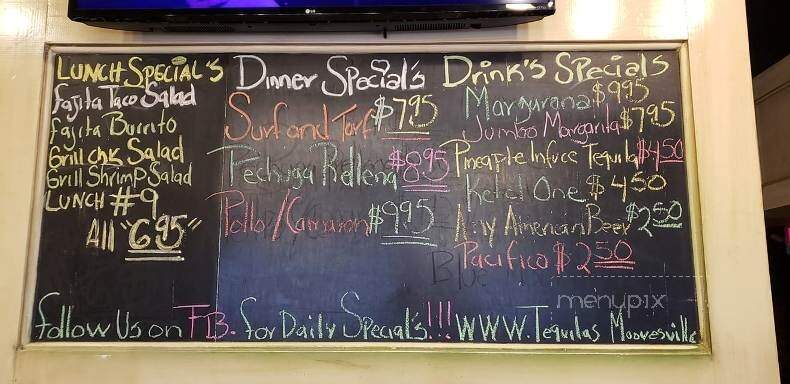 LG
LUNCH SPECIAL'S
fajita Taco Salad
fajita Burrito
Grill chk Salad
Grill Shrimp Salad
LUNCH #9
All "6.95"
Dinner Special's
Surf and Turf $7.95
Pechuga Rellena $8.95
Pollo/Camaron $9.95
Drink's Specials
$9.95
Jumbo Margarita $7.95
Pineapple Infuce Tequila $4.50
Ketel One $4.50
Any American Beer $2.50
Pacifico $2.50
menupix
follow Us on FB. for Daily Special's!!! WWW.Tequilas Mooresville